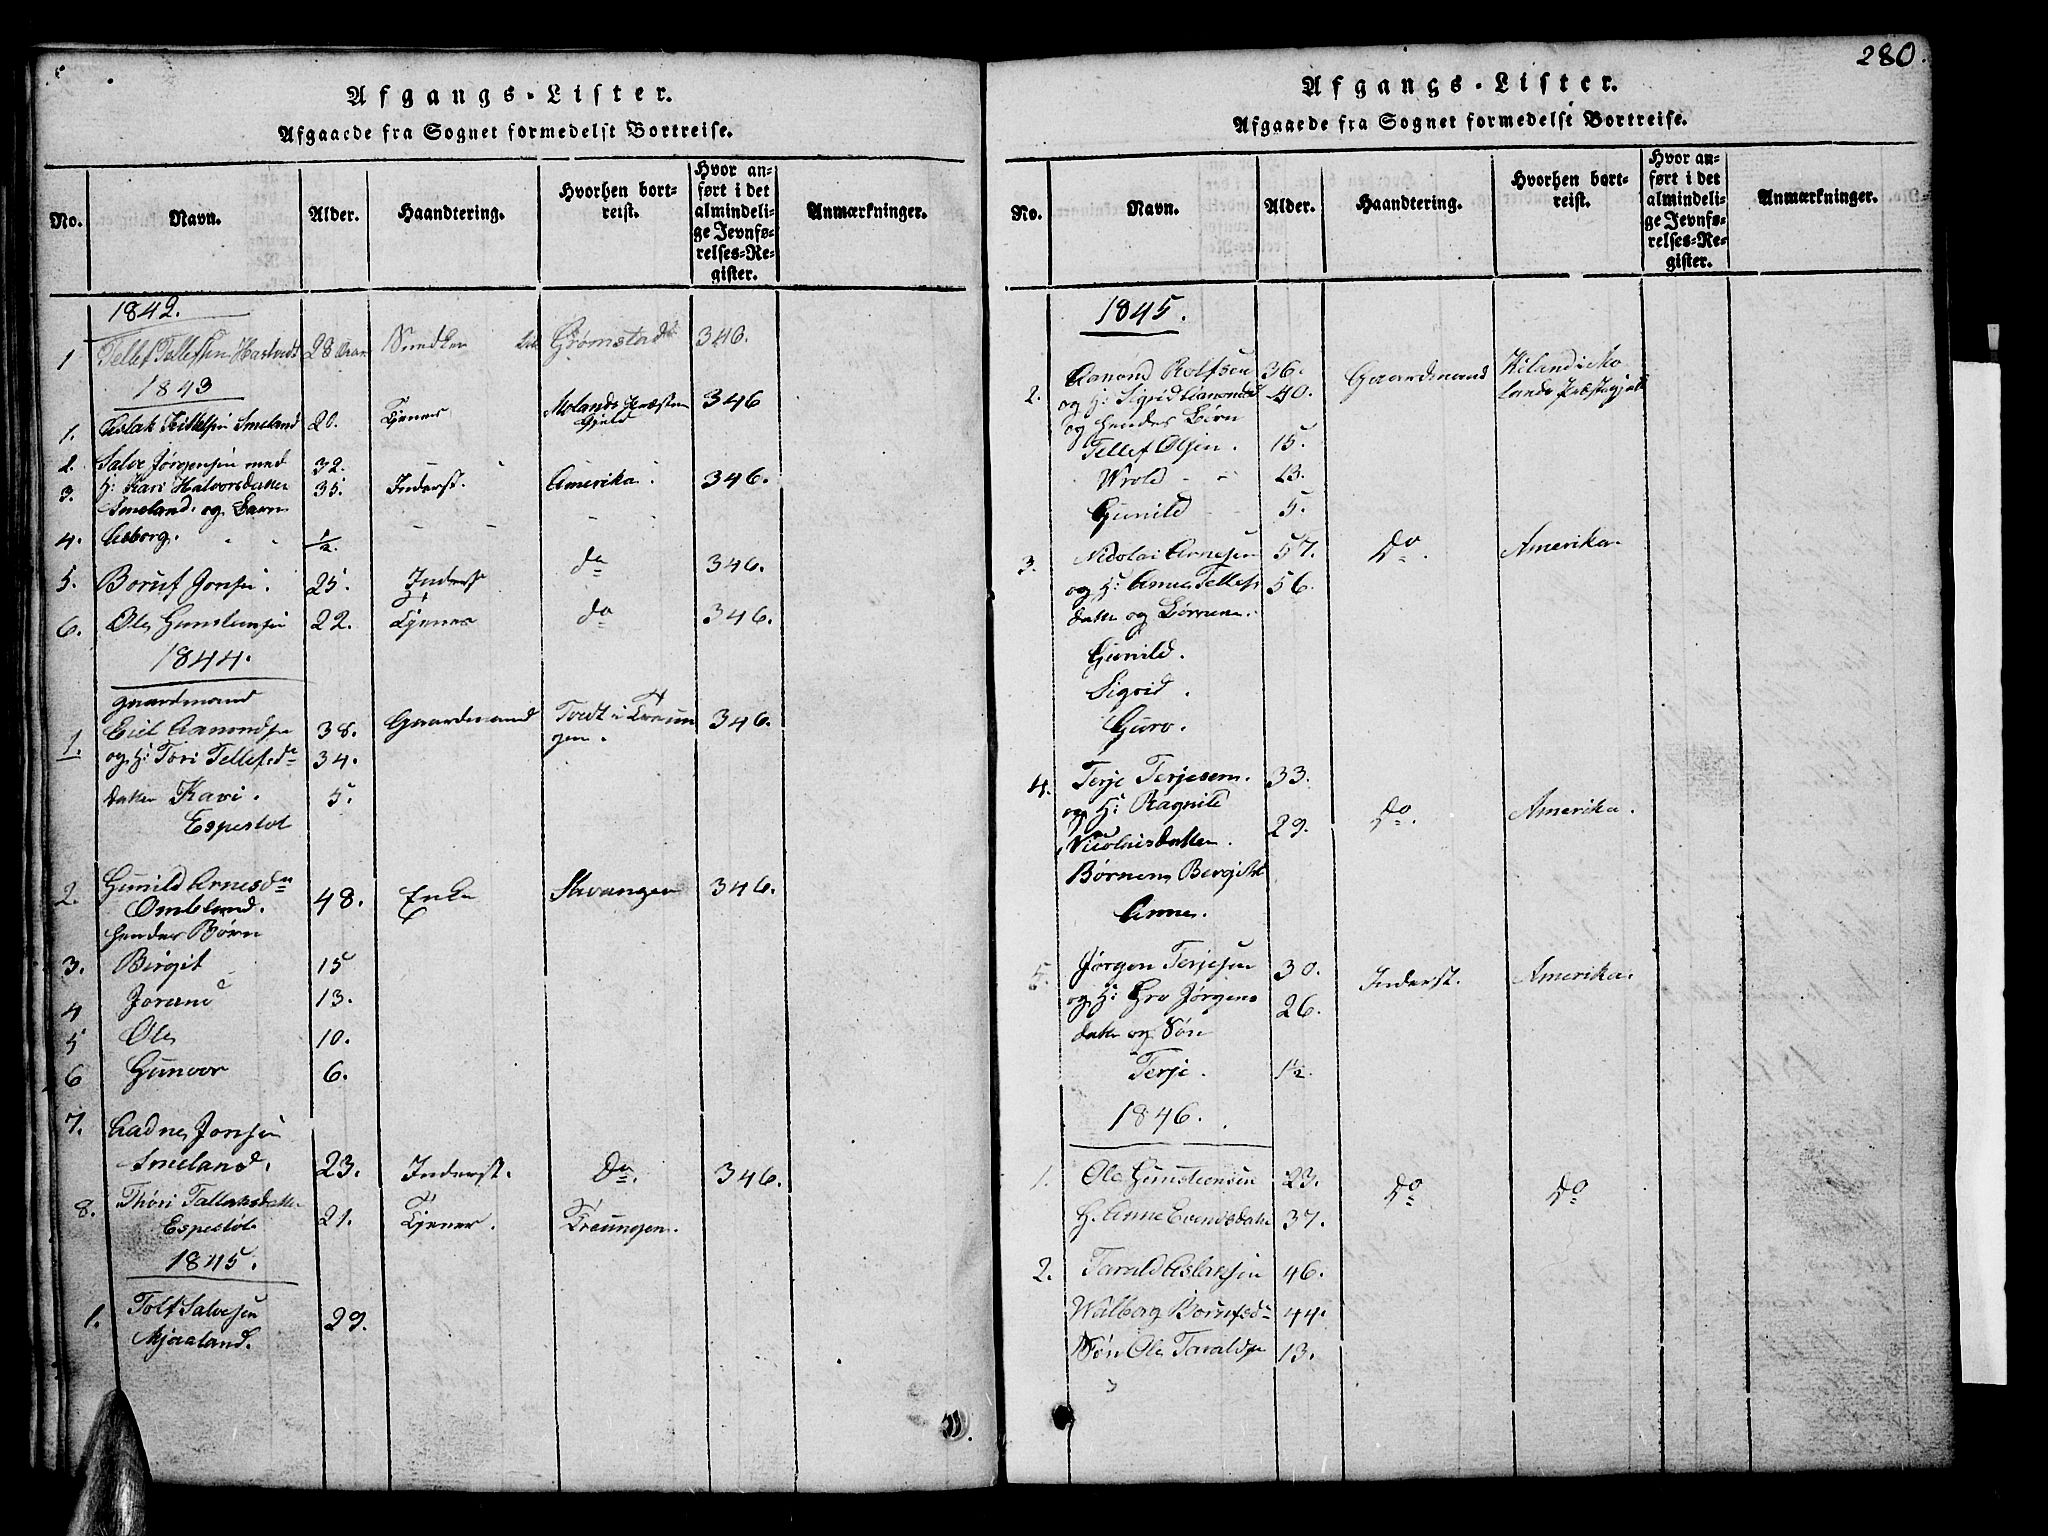 Afgangs-Lister.
Afgaaede fra Sognet formedelst Bortreise.
No. Navn. Alder. Haandtering. Hvorhen bort-
reist. Hvor an-
ført i det
almindeli-
ge Jevnfø-
relses-Re-
gister. Anmærkninger.
1842.
1 Tellef Tallefsen 28 Aar Snedker Grømstad 346.
1843
1. Aslak Kittelsen Smeland 20. Tjener Molands Præste 346
Gjeld
2. Salve Jørgensen med 32.
3. H: Kari Halvorsdatter 35. Inderst. Amerika. 346.
Smeland. og Barn
4. Asborg. 1/2.
5. Boruf Jonsen. 25. Inderst do 346.
6. Ole Gunstensen 22. Tjener do 346.
1844.
gaardmand
1. Eivl Aamondsen 38. Gaardmand Tvedt i Treun 346.
gen.
og H: Tori Tellefsd 34.
datter Kari. 5.
Espestøl
2. Gunild Arnesd 48. Enke Stavanger 346.
Omland.
hendes Børn
3. Birgit 15
4 Jorand 13.
5 Ole 10.
6 Gunvor 6.
7. Aadne Jonsen
Smeland. 23. Inderst. do. 346.
8. Thori Tallaksdatter 21. Tjener. Treungen.
Espestøl
1845.
1. Tolf Salvesen 29.
Mjaaland.
280.
Afgangs-Lister.
Afgaaede fra Sognet formedelst Bortreise.
No. Navn. Alder. Haandtering. Hvorhen bort-
reist. Hvor an-
ført i det
almindeli-
ge Jevnfø-
relses-Re-
gister. Anmærkninger.
1845.
2. Aanond Rolfsen 36. Gaardmand Kiland i Mo
og H: Sigrid Aanonds 40. lands Præstegjeld
og hendes Børn
Tellef Olsen. 15.
Wrold 13.
Gunild 5.
3. Nicolai Arnesen 57. Do. Amerika.
og H: Anne Tellefs 56.
datter og Børnene.
Gunild.
Sigrid.
Guro.
4. Terje Terjesen. 33.
og H: Ragnild 29. Do. Amerika.
Nicolaisdatter.
Børnene Bergith
Anne.
5. Jørgen Terjesen 30. Inderst. Amerika.
og H: Gro Jørgens 26.
datter og Søn
Terje. 1½.
1846.
1. Ole Gunstensen 23. Do Do
H. Anne Evendsdatter 37.
2. Tarald Aslaksen 46.
Walborg Borufsd 44.
Søn Ole Taraldsen 13.